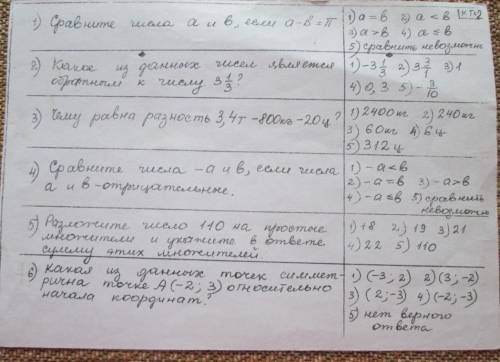 1) Сравните числа а и в, если а-в=π
1) а=в 2) а<в
3) а>в 4) а≤в
5) сравнить невозможно
2) Какое из данных чисел является
обратным к числу 3 1/3?
1) -3 1/3 2) 3 3/1 3) 1
4) 0,3 5) -3/10
3) Чему равна разность 3,4т-800кг-20ц?
1) 2400кг 2) 240кг
3) 60кг 4) 6ц
5) 312ц
4) Сравните числа -а и в, если числа
а и в-отрицательные.
1) -а<в
2) -а=в 3) -а>в
4) -а≤в 5) сравнить
невозможно
5) Разложите число 110 на простые
множители и укажите в ответе
сумму этих множителей.
1) 18 2) 19 3) 21
4) 22 5) 110
6) Какая из данных точек симмет-
рична точке А(-2; 3) относительно
начала координат?
1) (-3; 2) 2) (3; -2)
3) (2; -3) 4) (-2; -3)
5) нет верного
ответа